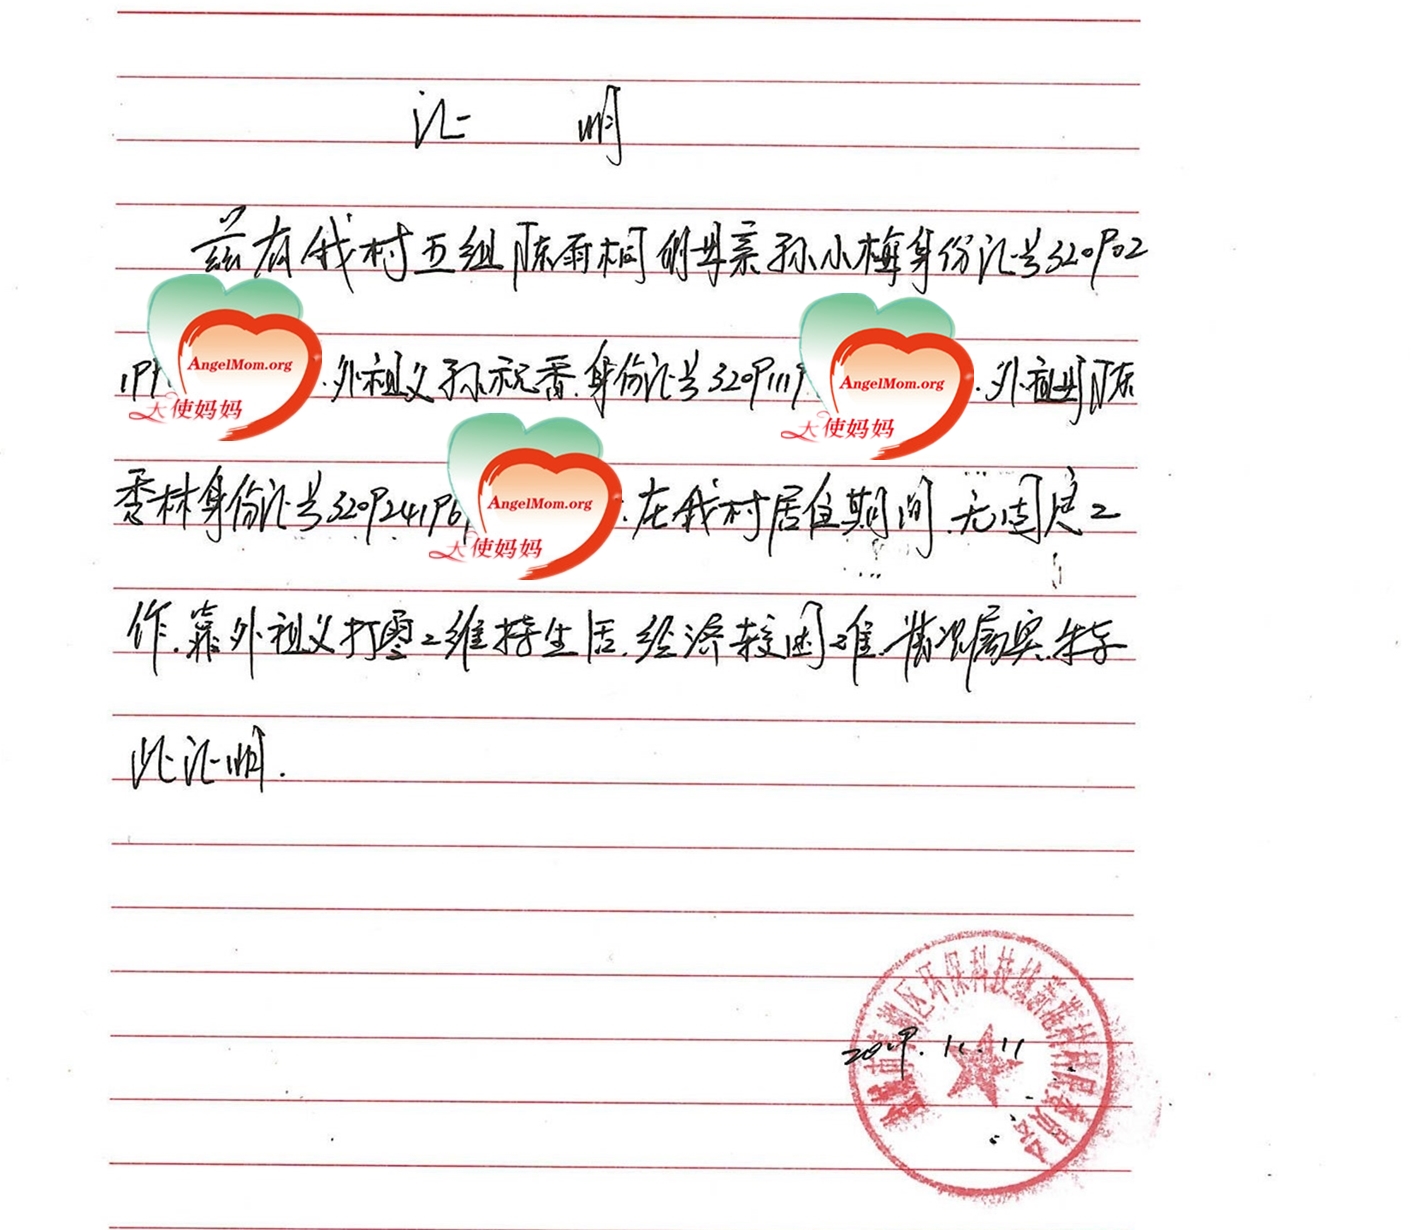 证 明
兹有我村五组陈雨桐的母亲孙小梅身份证号320902
199 AngelMom.org 天使妈妈 .外祖父孙祝香.身份证号32091119 AngelMom.org 天使妈妈 .外祖母陈
秀林身份证号320924196 AngelMom.org 天使妈妈 .在我村居住期间.无固定工
作.靠外祖父打零工维持生活.经济较困难.情况属实.特
此证明.
区环保科技城 村村民委员会
2019.11.11